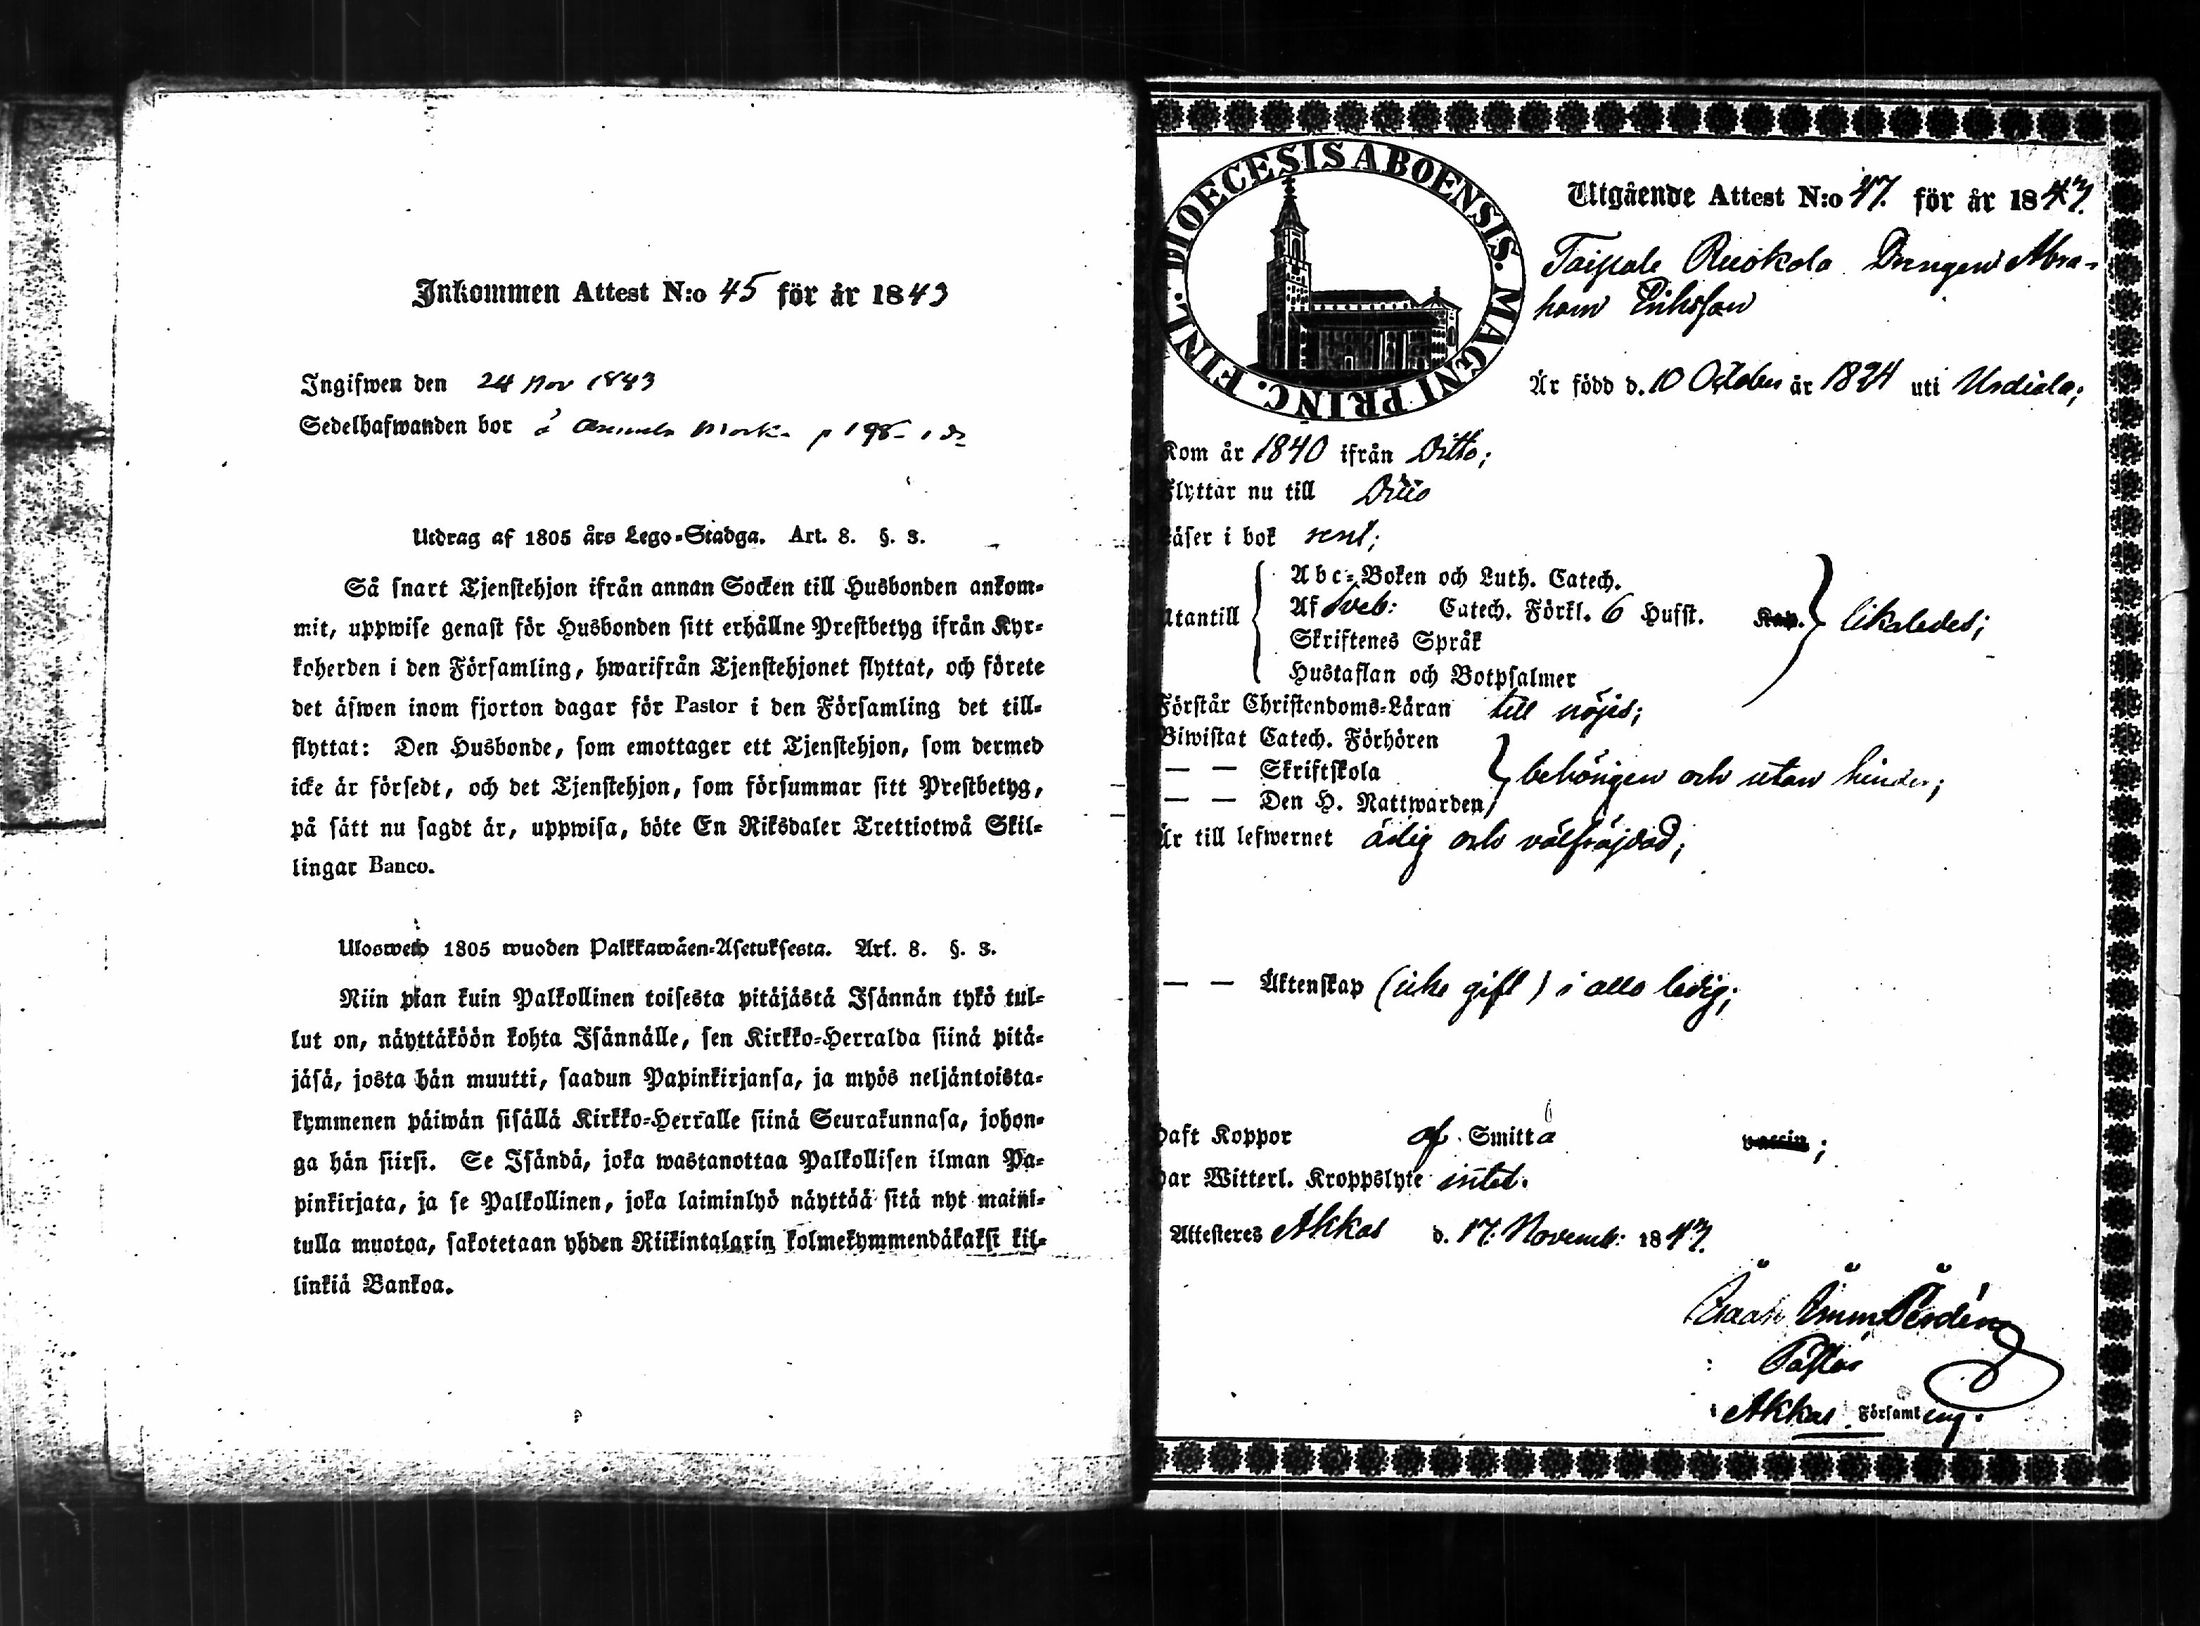 Inkommen Attest N:o 45 för år 1843
Ingifwen den 24 Nov 1843
Sedelhafwanden bor å
Utdrag af 1805 års Lego-Stadga. Art. 8. §. 3.
Så snart Tjenstehjon ifrån annan Socken till Husbonden ankom-
mit, uppwise genast för Husbonden sitt erhållne Prestbetyg ifrån Kyr-
koherden i den Församling, hwarifrån Tjenstehjonet flyttat, och förete
det äfwen inom fjorton dagar för Pastor i den Församling det till-
flyttat: Den Husbonde, som emottager ett Tjenstehjon, som dermed
icke är försedt, och det Tjenstehjon, som försummar sitt Prestbetyg,
på sätt nu sagdt är, uppwisa, böte En Riksdaler Trettiotwå Skil-
lingar Banco.
Ulosweto 1805 wuoden Palkkawäen-Asetuksesta. Art. 8. §. 3.
Niin pian kuin Palkollinen toisesta pitäjästä Isännän tykö tul-
lut on, näyttäköön kohta Isännälle, sen Kirkko-Herralda siinä pitä-
jäsä, josta hän muutti, saadun Papinkirjansa, ja myös neljäntoista-
kymmenen päiwän sisällä Kirkko-Herralle siinä Seurakunnasa, johon-
ga hän siirsi. Se Isändä, joka wastanottaa Palkollisen ilman Pa-
pinkirjata, ja se Palkollinen, joka laiminlyö näyttää sitä nyt maini-
tulla muotoa, sakotetaan yhden Riikintalarin kolmekymmendäkaksi kil-
linkiä Bankoa.
FINL. DIOECESIS ABOENSIS. MAGNI PRINC.
Utgående Attest N:o 47. för år 1843.
Taipale Ruokola Drengen Abra-
ham Eriksson
Är född d. 10 October år 1824 uti Urdiala;
Kom år 1840 ifrån Ditto;
Flyttar nu till Ditto
Läser i bok rent;
Abc-Boken och Luth. Catech.
Utantill Af Sveb: Catech. Förkl. 6 Hufst. Kap. likaledes;
Skriftenes Språk
Hustaflan och Botpsalmer
Förstår Christendoms-Läran till nöjes;
Biwistat Catech. Förhören
— — Skriftskola behörigen och utan hinder;
— — Den H. Nattwarden
Är till lefwernet ärlig och välfräjdad;
— — Äktenskap (icke gift) i allo ledig;
Haft Koppor af Smitta vaccin;
Har Witterl. Kroppslyte intet.
Attesteres Akkas d. 17. Novemb: 1843.
Pastor
i Akkas Församling.